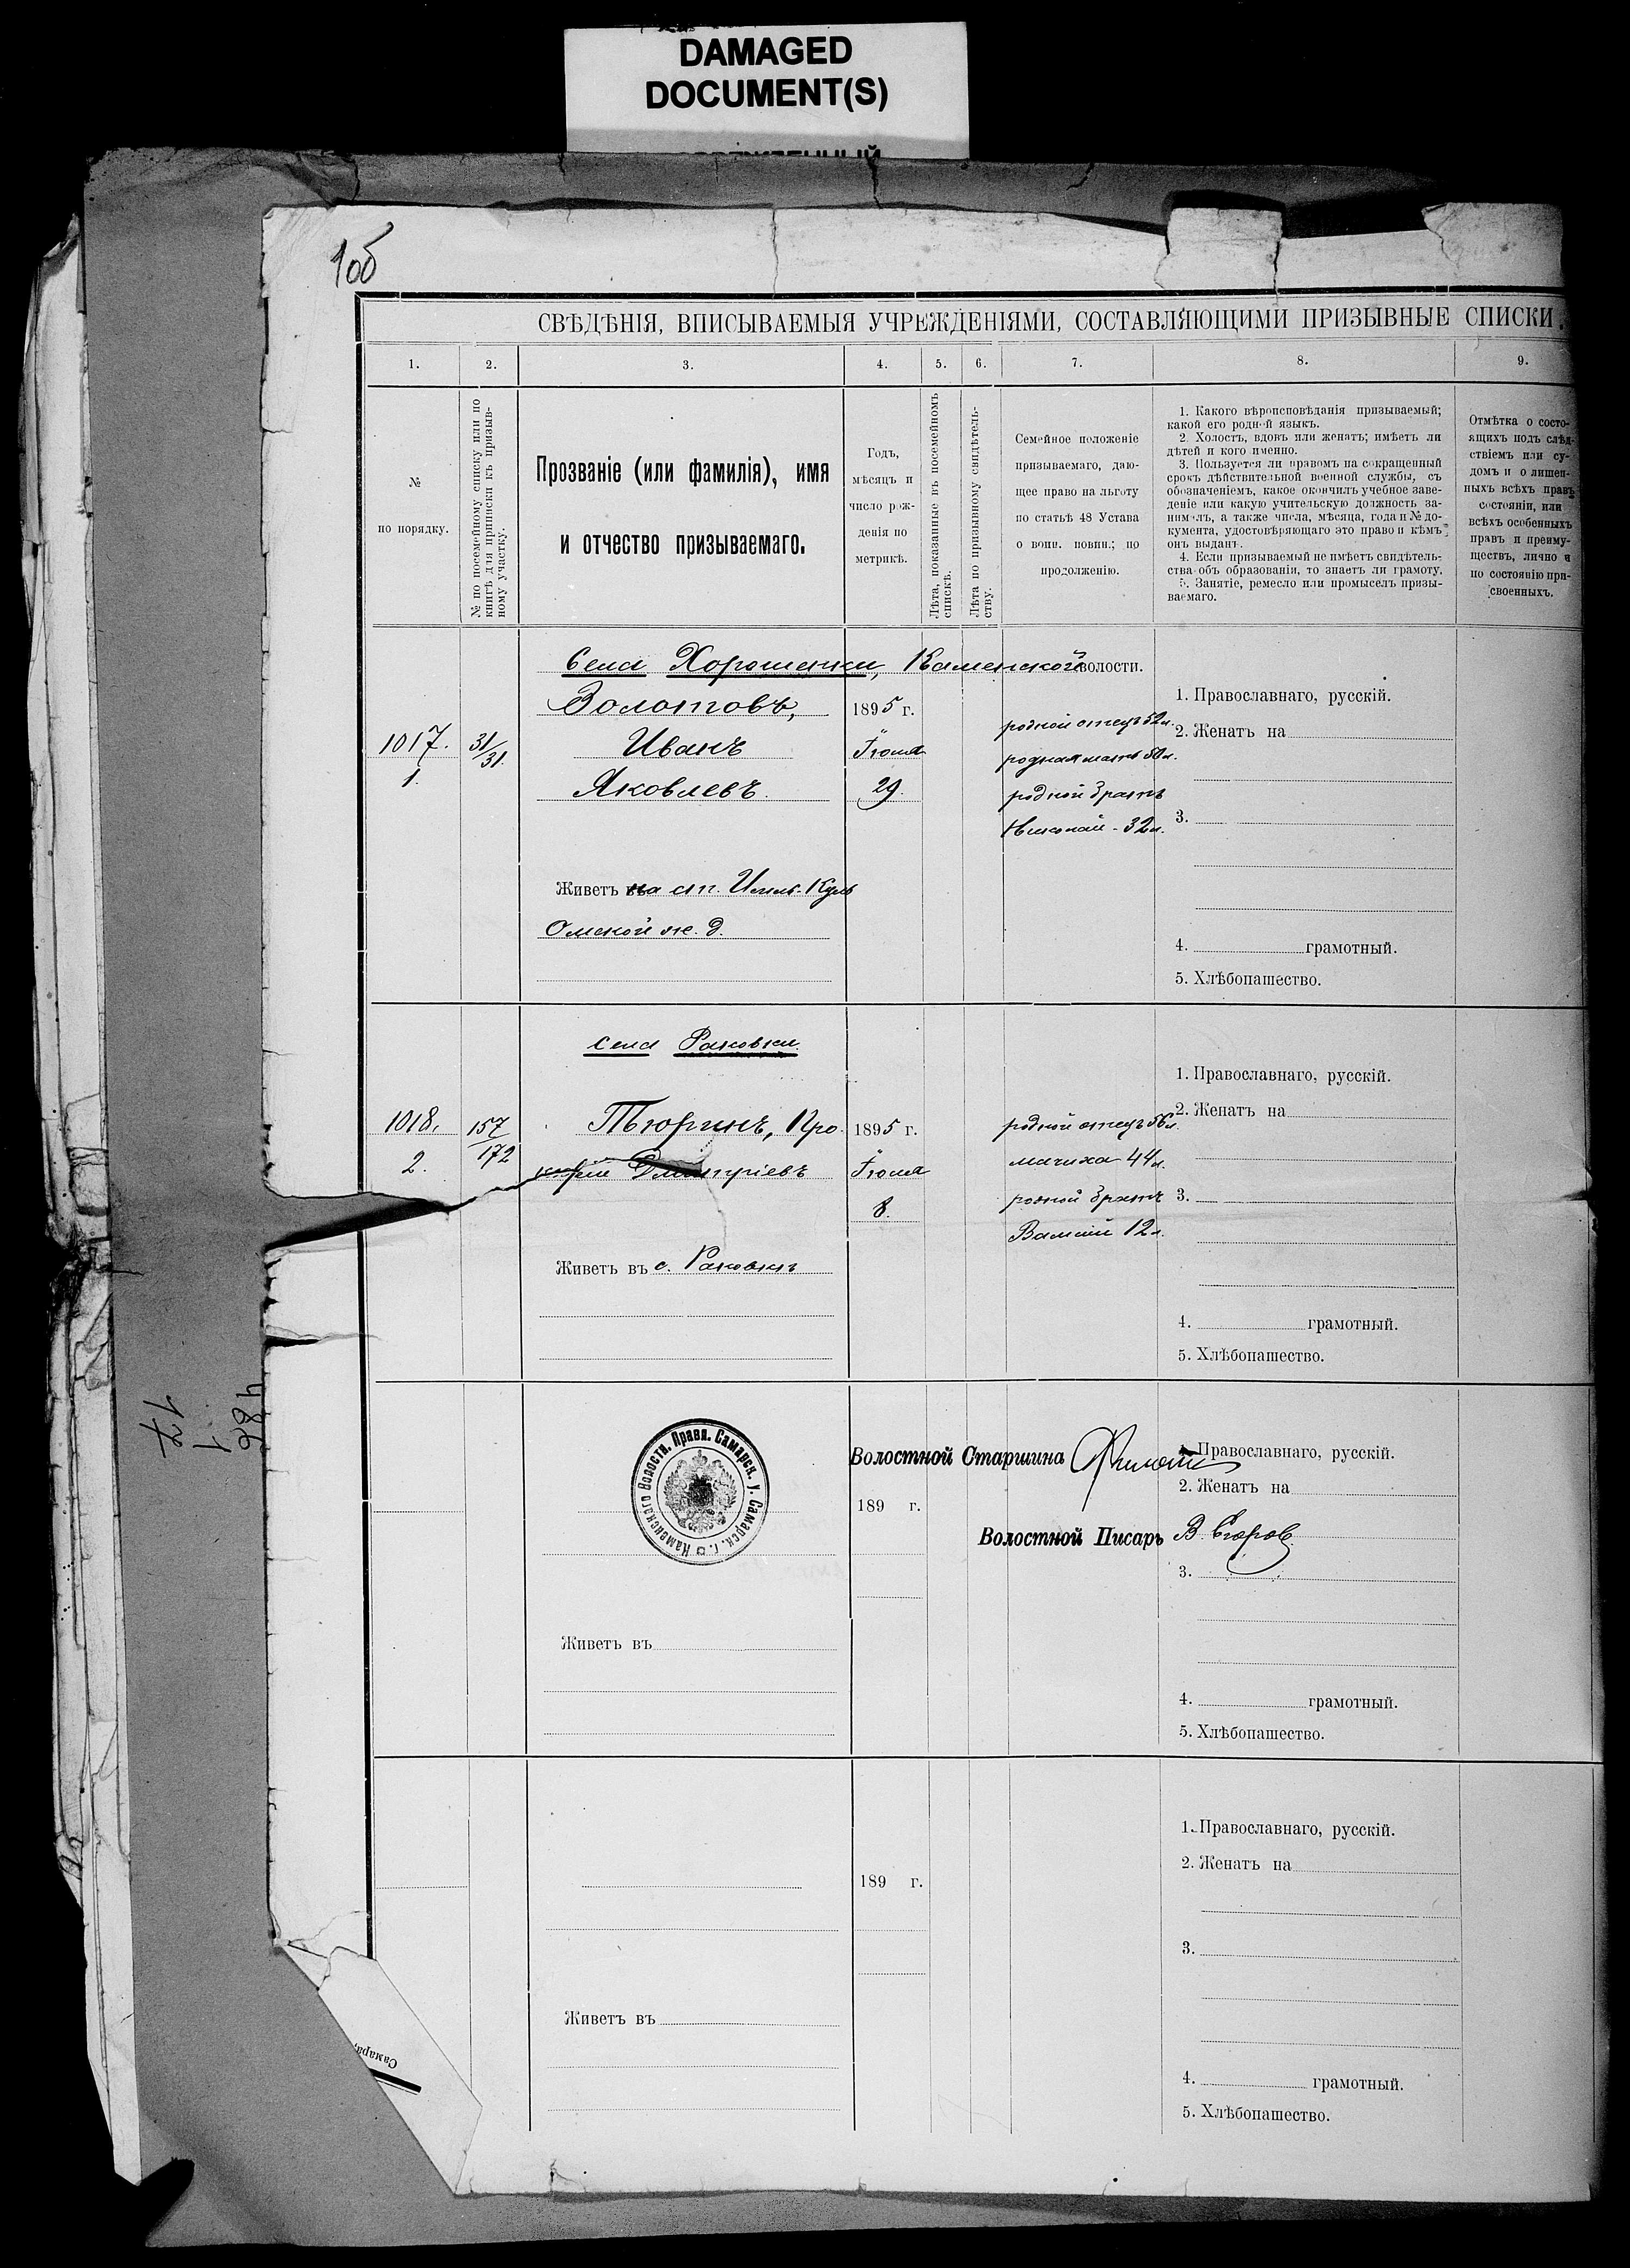 DAMAGED
DOCUMENT(S)
106
СВѢДѢНІЯ, ВПИСЫВАЕМЫЯ УЧРЕЖДЕНІЯМИ, СОСТАВЛЯЮЩИМИ ПРИЗЫВНЫЕ СПИСКИ.
1. 2. 3. 4. 5. 6. 7. 8. 9.
№
по порядку.
№ по посемейному списку или по
книгѣ для приписки къ призыв-
ному участку.
Прозваніе (или фамилія), имя
и отчество призываемаго.
Годъ,
мѣсяцъ и
число рож-
денія по
метрикѣ.
Лѣта, показанные въ посемейномъ
спискѣ.
Лѣта по призывному свидѣтель-
ству.
Семейное положеніе
призываемаго, даю-
щее право на льготу
по статьѣ 48 Устава
о воин. повин.; по
продолженію.
1. Какого вѣроисповѣданія призываемый;
какой его родной языкъ.
2. Холостъ, вдовъ или женатъ; имѣетъ ли
дѣтей и кого именно.
3. Пользуется ли правомъ на сокращенный
срокъ дѣйствительной военной службы, съ
обозначеніемъ, какое окончилъ учебное заве-
деніе или какую учительскую должность за-
нималъ, а также числа, мѣсяца, года и № до-
кумента, удостовѣряющаго это право и кѣмъ
онъ выданъ.
4. Если призываемый не имѣетъ свидѣтель-
ства объ образованіи, то знаетъ ли грамоту.
5. Занятіе, ремесло или промыселъ призы-
ваемаго.
Отмѣтка о состо-
ящихъ подъ слѣд-
ствіемъ или су-
домъ и о лишен-
ныхъ всѣхъ правъ
состоянія, или
всѣхъ особенныхъ
правъ и преиму-
ществъ, лично и
по состоянію при-
своенныхъ.
Села Хорошенки, Каменской волости.
1017.
1.
31/31.
Золотовъ,
Иванъ
Яковлевъ.
1895 г.
Іюля
29.
родной отецъ 52 л.
родная мать 50 л.
родной братъ
Николай - 32 л.
1. Православнаго, русскій.
2. Женатъ на
3.
4. грамотный.
5. Хлѣбопашество.
Живетъ въ на ст. Куль
Омской ж. д.
села Раковки.
1018.
2.
157/172
Тюринъ, Про-
кофій Дмитріевъ
1895 г.
Іюля
8.
родной отецъ 56 л.
мачиха 44 л.
родной братъ
Василій 12 л.
1. Православнаго, русскій.
2. Женатъ на
3.
4. грамотный.
5. Хлѣбопашество.
Живетъ въ с. Раковкѣ
Каменскаго Волостн. Правл. Самарск. у. Самарск. г.
Волостной Старшина
189 г.
Волостной Писарь В. Егоров
1. Православнаго, русскій.
2. Женатъ на
3.
4. грамотный.
5. Хлѣбопашество.
Живетъ въ
189 г.
1. Православнаго, русскій.
2. Женатъ на
3.
4. грамотный.
5. Хлѣбопашество.
Живетъ въ
Самара,
486
1
17